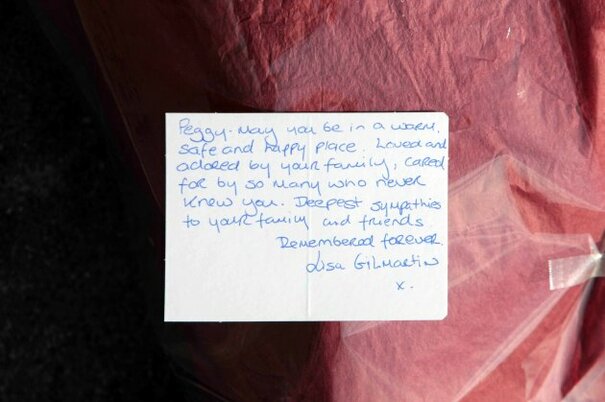 Peggy. May you be in a warm,
safe and happy place. Loved and
adored by your family, cared
for by so many who never
knew you. Deepest sympathies
to your family and friends
Remembered forever.
Lisa Gilmartin
x.